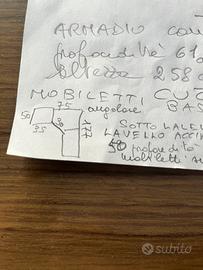 ARMADIO con
profondità 61
altezza 258 c
MOBILETTI CUC
75 angolare BAS
50
35
SOTTO LALE
LAVELLO ACCIA
50 profondità
mobiletti
subito